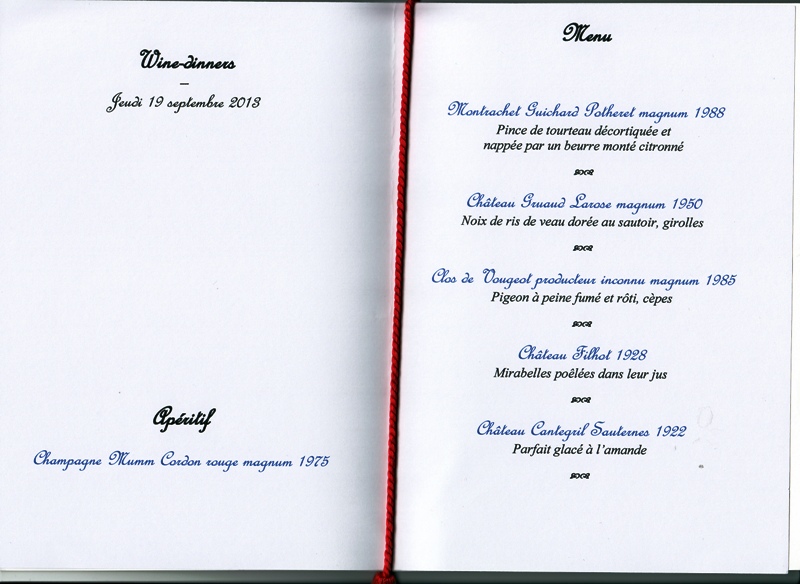 Wine-dinners
–
Jeudi 19 septembre 2013
Apéritif
Champagne Mumm Cordon rouge magnum 1975
Menu
Montrachet Guichard Potheret magnum 1988
Pince de tourteau décortiquée et
nappée par un beurre monté citronné
Château Gruaud Larose magnum 1950
Noix de ris de veau dorée au sautoir, girolles
Clos de Vougeot producteur inconnu magnum 1985
Pigeon à peine fumé et rôti, cèpes
Château Filhot 1928
Mirabelles poêlées dans leur jus
Château Cantegril Sauternes 1922
Parfait glacé à l'amande